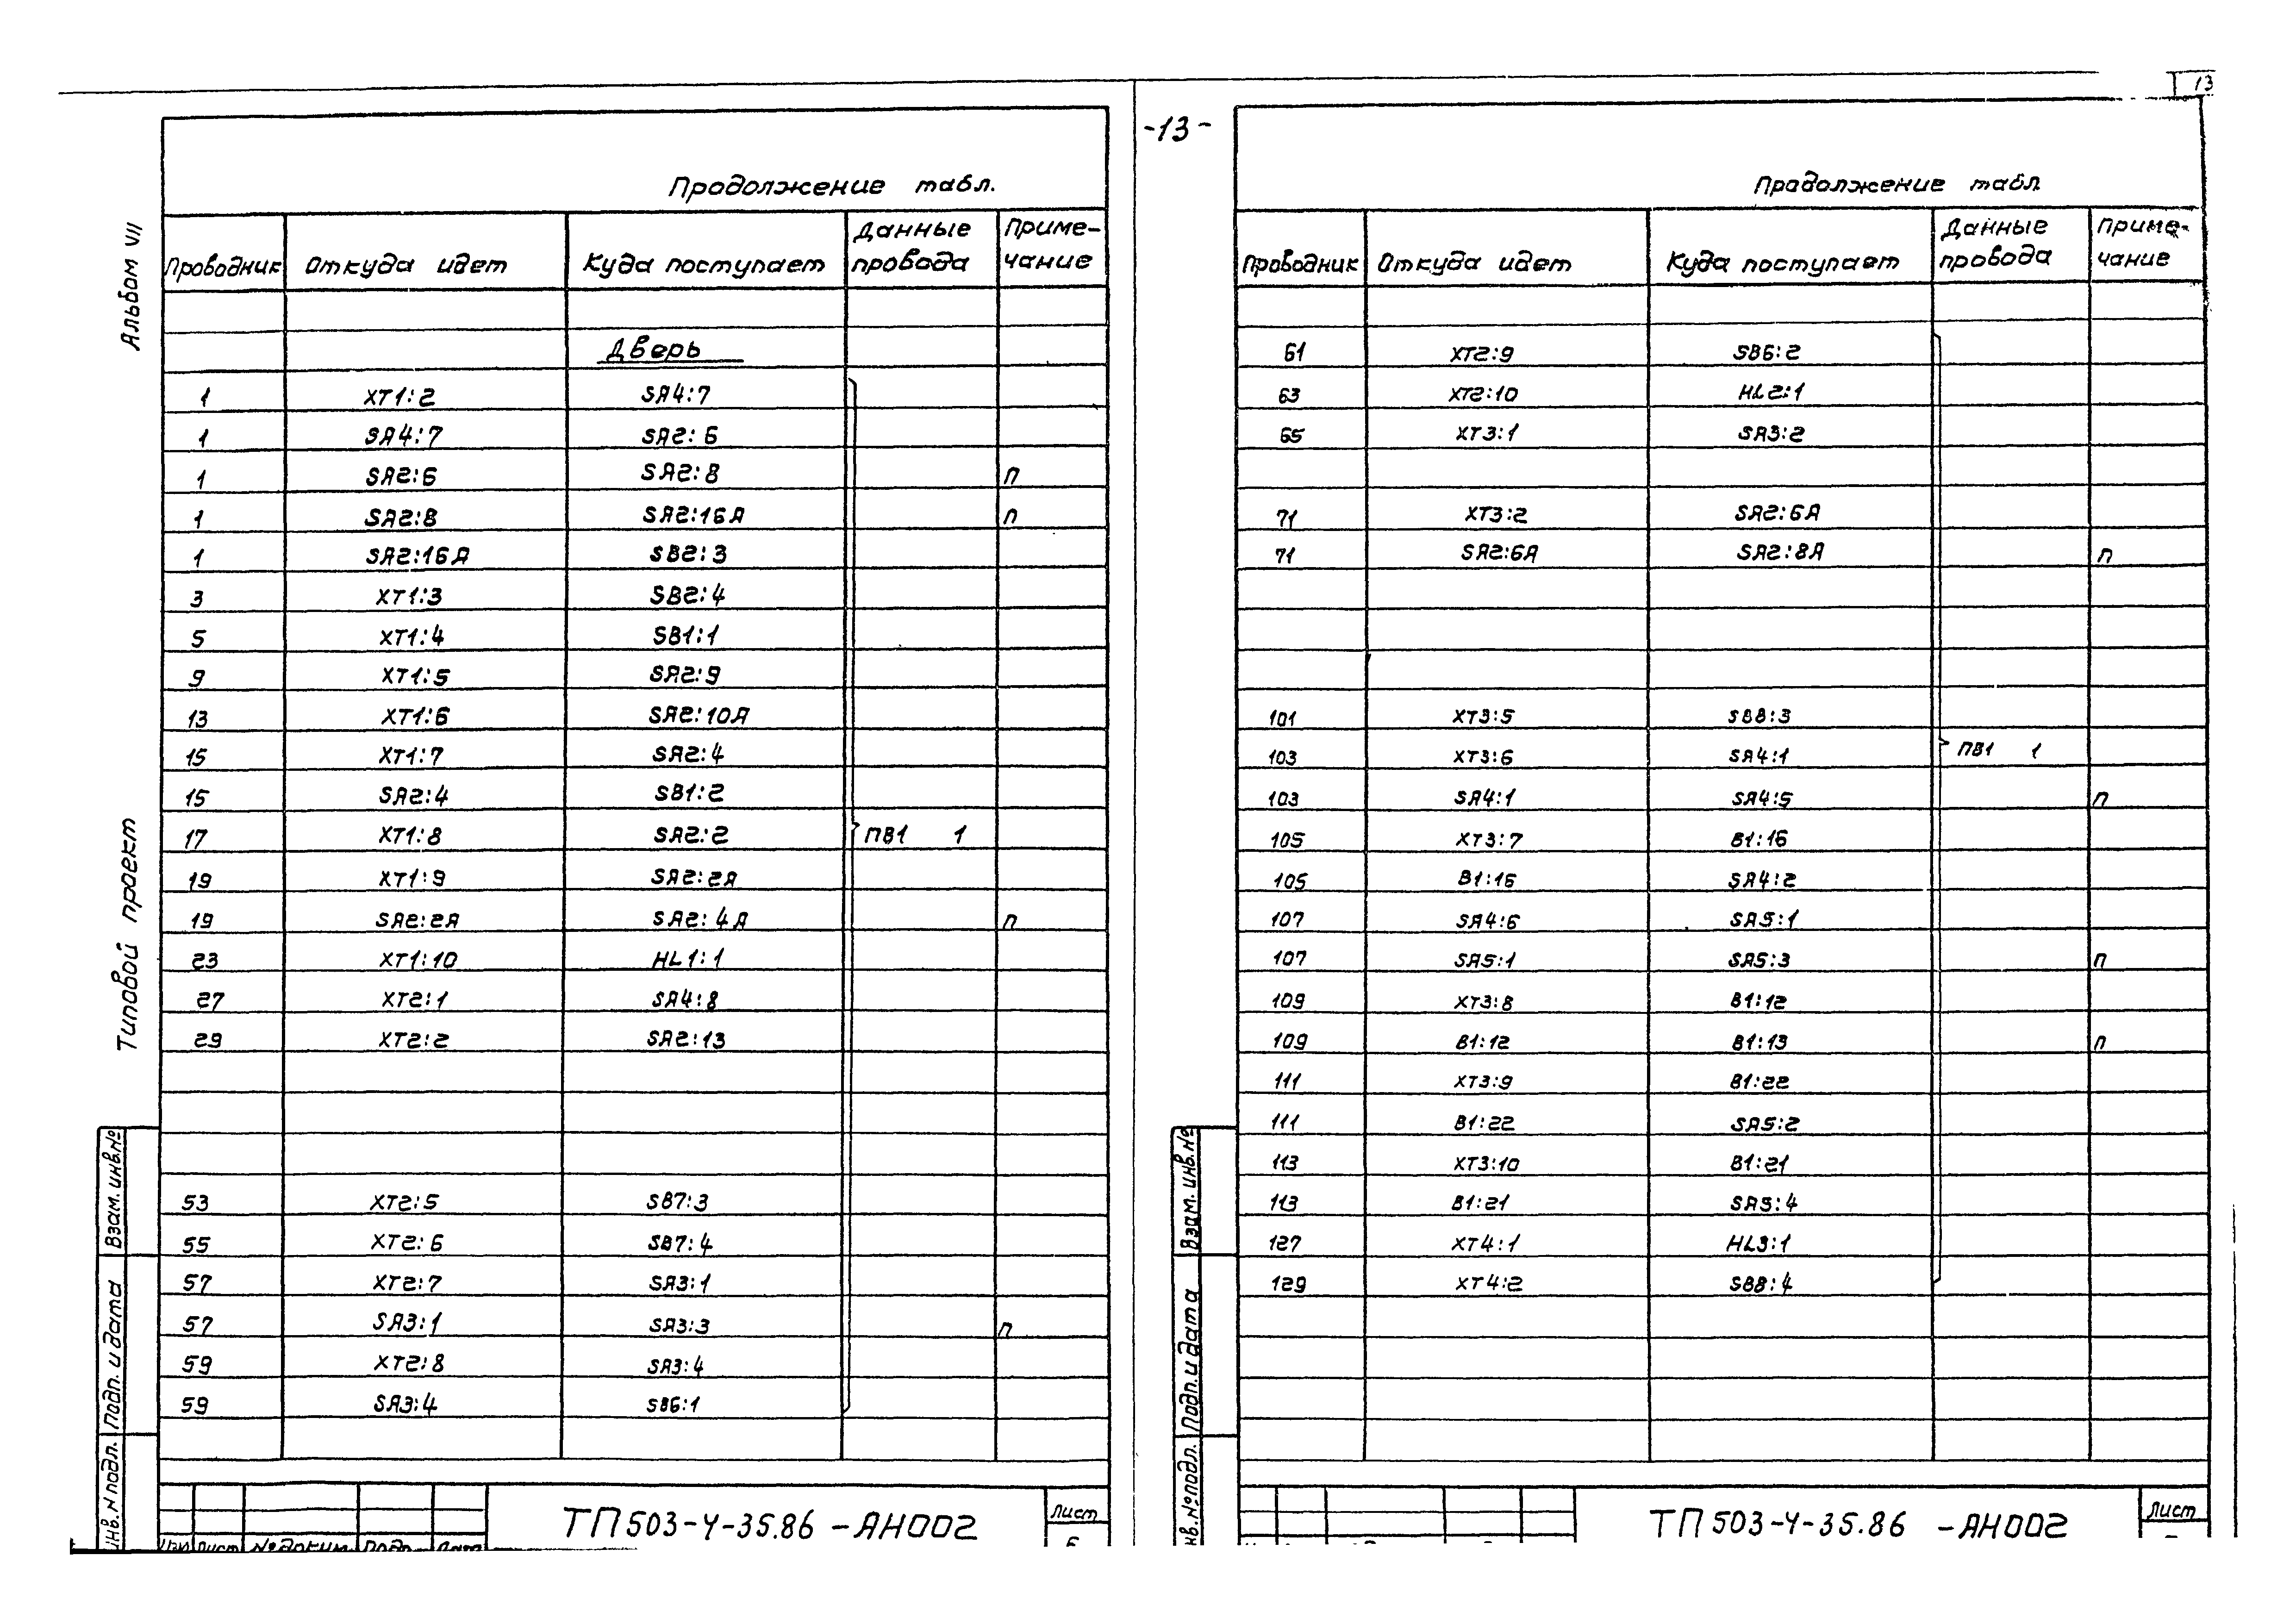 13
-13-
Альбом VII
Типовой проект
Взам. инв.№
Подп. и дата
Инв. N подл.
Продолжение табл.
Проводник Откуда идет Куда поступает Данные провода Приме-чание
Дверь
1 XT1:2 SA4:7
1 SA4:7 SA2:6
1 SA2:6 SA2:8 п
1 SA2:8 SA2:16A п
1 SA2:16A SB2:3
3 XT1:3 SB2:4
5 XT1:4 SB1:1
9 XT1:5 SA2:9
13 XT1:6 SA2:10A
15 XT1:7 SA2:4
15 SA2:4 SB1:2
17 XT1:8 SA2:2 ПВ1 1
19 XT1:9 SA2:2A
19 SA2:2A SA2:4A п
23 XT1:10 HL1:1
27 XT2:1 SA4:8
29 XT2:2 SA2:13
53 XT2:5 SB7:3
55 XT2:6 SB7:4
57 XT2:7 SA3:1
57 SA3:1 SA3:3 п
59 XT2:8 SA3:4
59 SA3:4 SB6:1
ТП 503-4-35.86 -АН002
Лист
Изм Лист № докум. Подп. Дата
Продолжение табл
Проводник Откуда идет Куда поступает Данные провода Приме-чание
61 XT2:9 SB6:2
63 XT2:10 HL2:1
65 XT3:1 SA3:2
71 XT3:2 SA2:6A
71 SA2:6A SA2:8A п
101 XT3:5 SB8:3
103 XT3:6 SA4:1 ПВ1 1
103 SA4:1 SA4:5 п
105 XT3:7 B1:16
105 B1:16 SA4:2
107 SA4:6 SA5:1
107 SA5:1 SA5:3 п
109 XT3:8 B1:12
109 B1:12 B1:13 п
111 XT3:9 B1:22
111 B1:22 SA5:2
113 XT3:10 B1:21
113 B1:21 SA5:4
127 XT4:1 HL3:1
129 XT4:2 SB8:4
Взам. инв.№
Подп. и дата
Инв.№ подл.
ТП 503-4-35.86 -АН002
Лист